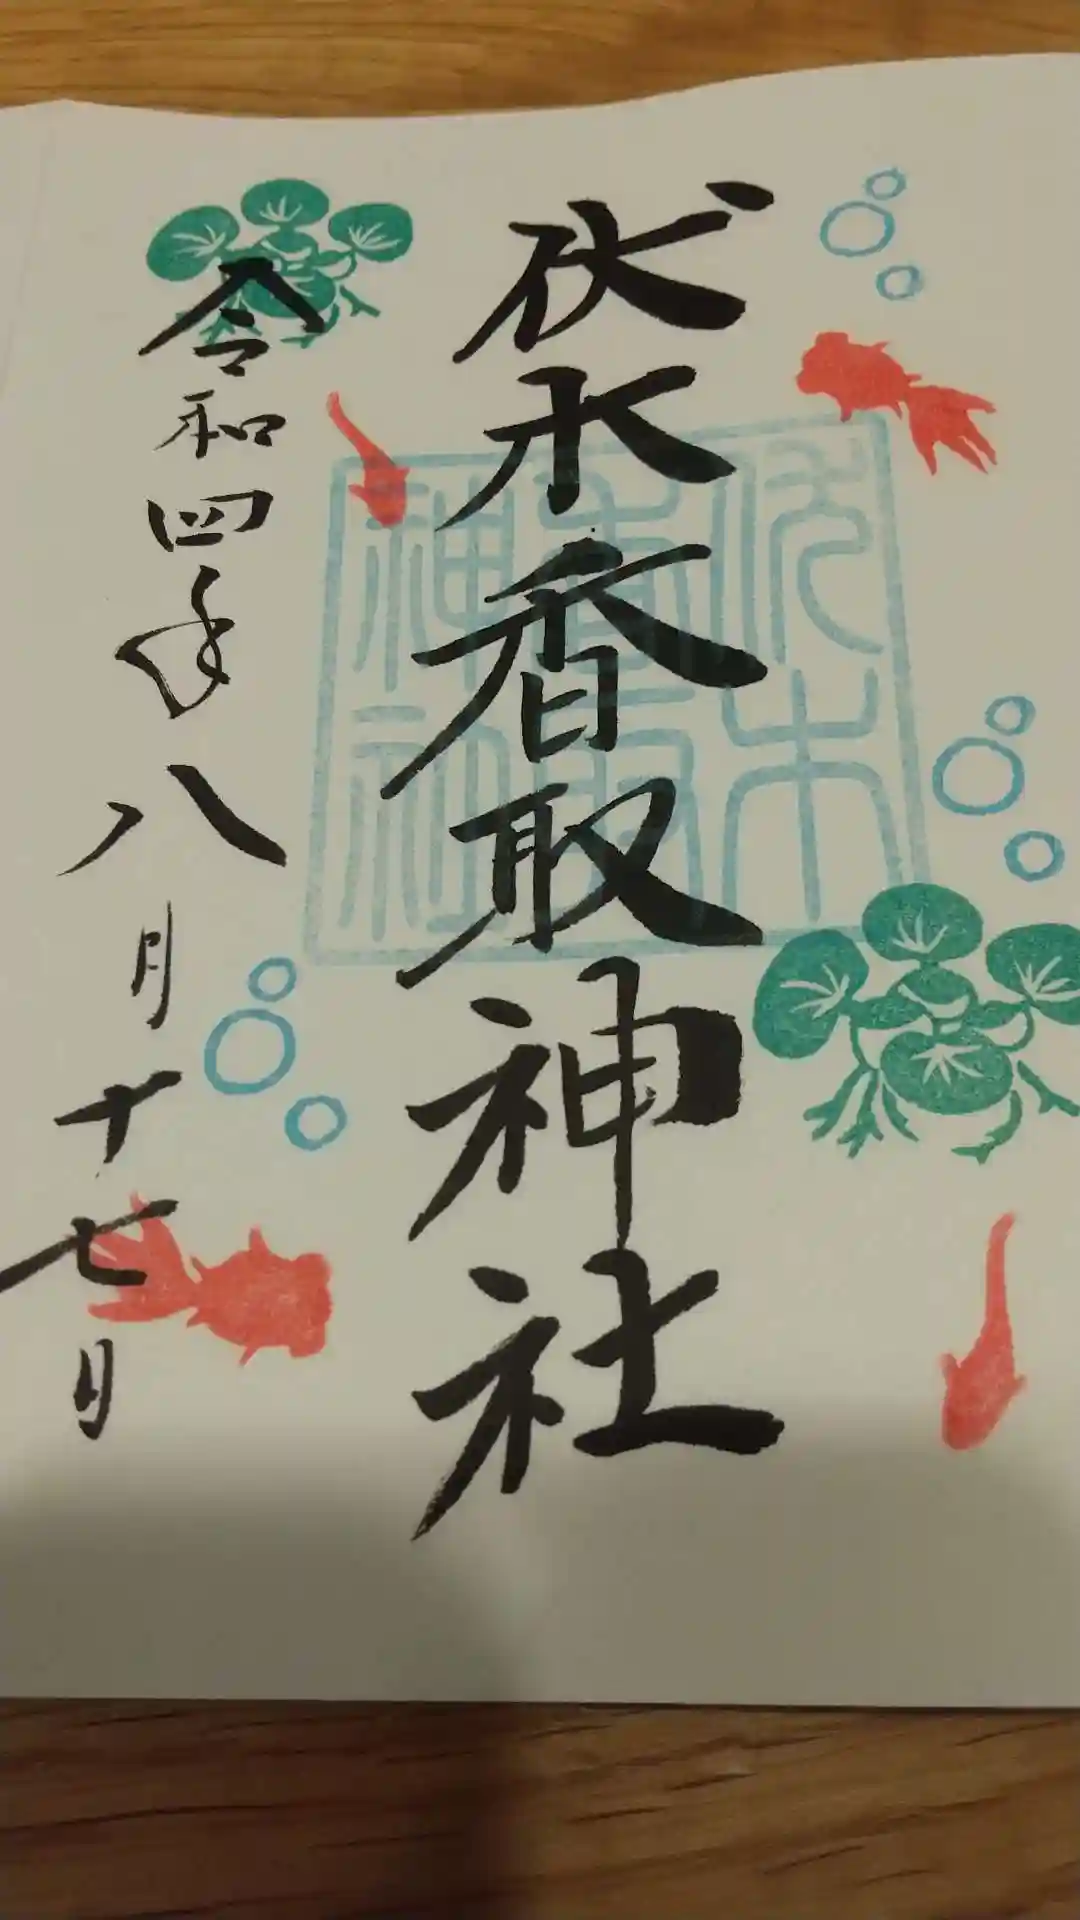 伏木香取神社
令和四年八月十七日
伏木
香取
神社